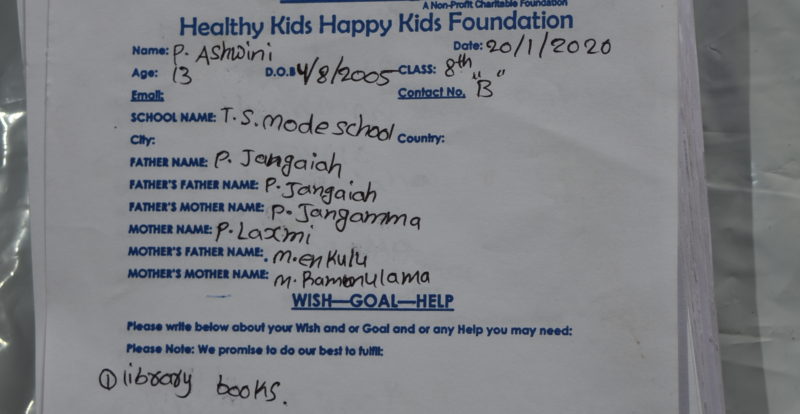 A Non-Profit Charitable Foundation
Healthy Kids Happy Kids Foundation
Name: P. Ashwini Date: 20/1/2020
Age: 13 D.O.B 4/8/2005 CLASS: 8th "B"
Email: Contact No.
SCHOOL NAME: T.S. mode school
City: Country:
FATHER NAME: P. Jangaiah
FATHER'S FATHER NAME: P. Jangaiah
FATHER'S MOTHER NAME: P. Jangamma
MOTHER NAME: P. Laxmi
MOTHER'S FATHER NAME: M. enkulu
MOTHER'S MOTHER NAME: M.
WISH—GOAL—HELP
Please write below about your Wish and or Goal and or any Help you may need:
Please Note: We promise to do our best to fulfil:
① library books.